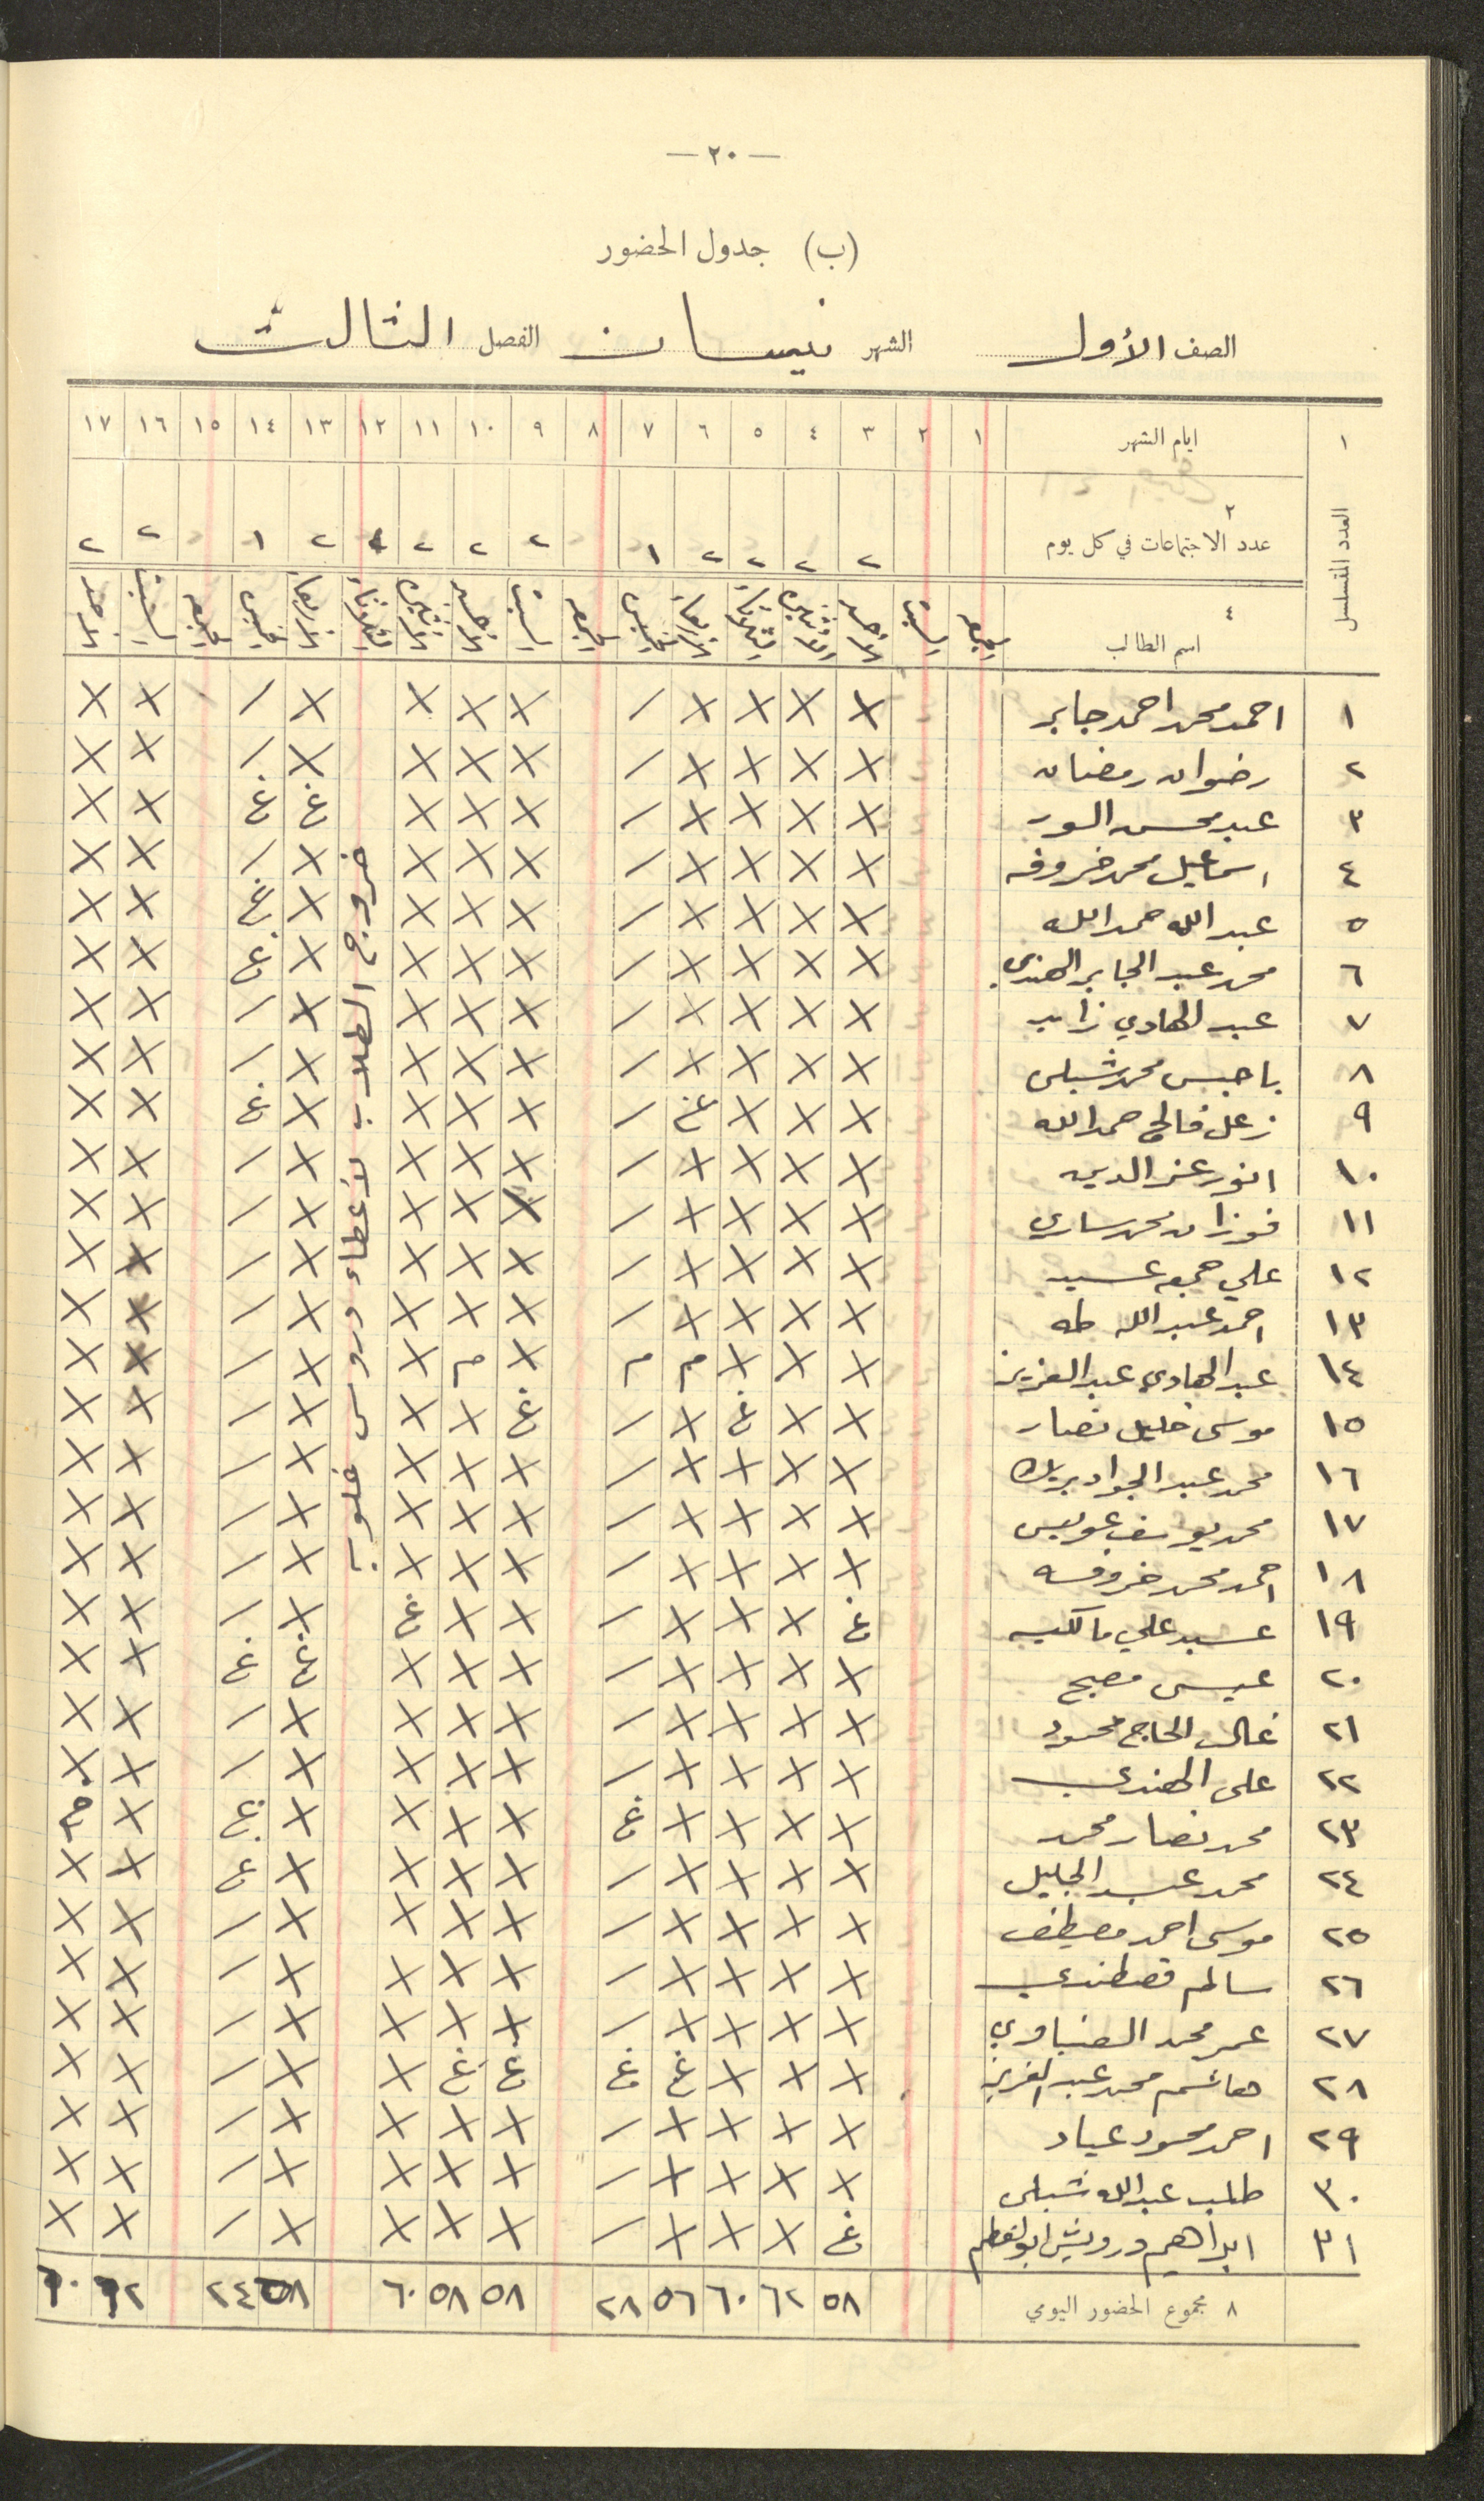 — ٢٠ —
(ب) جدول الحضور
الصف الأول الشهر نيسان الفصل الثالث
١ ايام الشهر ١ ٢ ٣ ٤ ٥ ٦ ٧ ٨ ٩ ١٠ ١١ ١٢ ١٣ ١٤ ١٥ ١٦ ١٧
العدد المتسلسل
٢
عدد الاجتماعات في كل يوم ٢ ٢ ٢ ٢ ١ ٢ ٢ ٢ ٢ ١ ٢ ٢
٤
اسم الطالب الجمعه السبت الأحد الأثنين الثلاثاء الأربعاء الخميس الجمعه السبت الأحد الأثنين الثلاثاء الأربعاء الخميس الجمعه السبت الأحد
خروج الطلاب لأعطاء دروس
١ احمد محمد احمد جابر X X X X / X X X X / X X
٢ رضوان رمضان X X X X / X X X X / X X
٣ عبد محسن X X X X / X X X غ غ X X
٤ اسماعيل محمد خروفه X X X X / X X X X / X X
٥ عبد الله حمد الله X X X X / X X X X غ X X
٦ محمد عبد الجابر الهندي X X X X / X X X X غ X X
٧ عبد الهادي زايد X X X X / X X X X / X X
٨ محمد شبلي X X X X / X X X X / X X
٩ زعل فالح حمد الله X X X غ / X X X X غ X X
١٠ انور عز الدين X X X X / X X X X / X X
١١ فوزان محمد ساري X X X X / X X X X / X X
١٢ علي جمعه عسيد X X X X / X X X X / X X
١٣ احمد عبد الله طه X X X X / X X X X / X X
١٤ عبد الهادي عبد العزيز X X X م م X م X X / X X
١٥ موسى خليل نصار X X غ X / غ X X X / X X
١٦ محمد عبد الجواد X X X X / X X X X / X X
١٧ محمد يوسف عويس X X X X / X X X X / X X
١٨ احمد محمد خروفه X X X X / X X X X / X X
١٩ عسيد علي مالكيه غ X X X / X X غ X / X X
٢٠ عيسى مصبح X X X X / X X X غ غ X X
٢١ الحاج محمود X X X X / X X X X / X X
٢٢ على الهندي X X X X / X X X X / X X
٢٣ محمد نصار محمد X X X X غ X X X X غ X
٢٤ محمد عبد الجليل X X X X / X X X X غ X X
٢٥ موسى احمد مصطفى X X X X / X X X X / X X
٢٦ سالم X X X X / X X X X / X X
٢٧ عمر محمد X X X X / X X X X / X X
٢٨ هاشم محمد عبد العزيز X X X غ غ غ غ X X / X X
٢٩ احمد محمود عياد X X X X / X X X X / X X
٣٠ طلب عبد الله شبلى X X X X / X X X X / X X
٣١ ابراهيم درويش غ X X X / X X X X / X X
٨ مجموع الحضور اليومي ٥٨ ٦٢ ٦٠ ٥٦ ٢٨ ٥٨ ٥٨ ٦٠ ٥٨ ٢٤ ٦٢ ٦٠